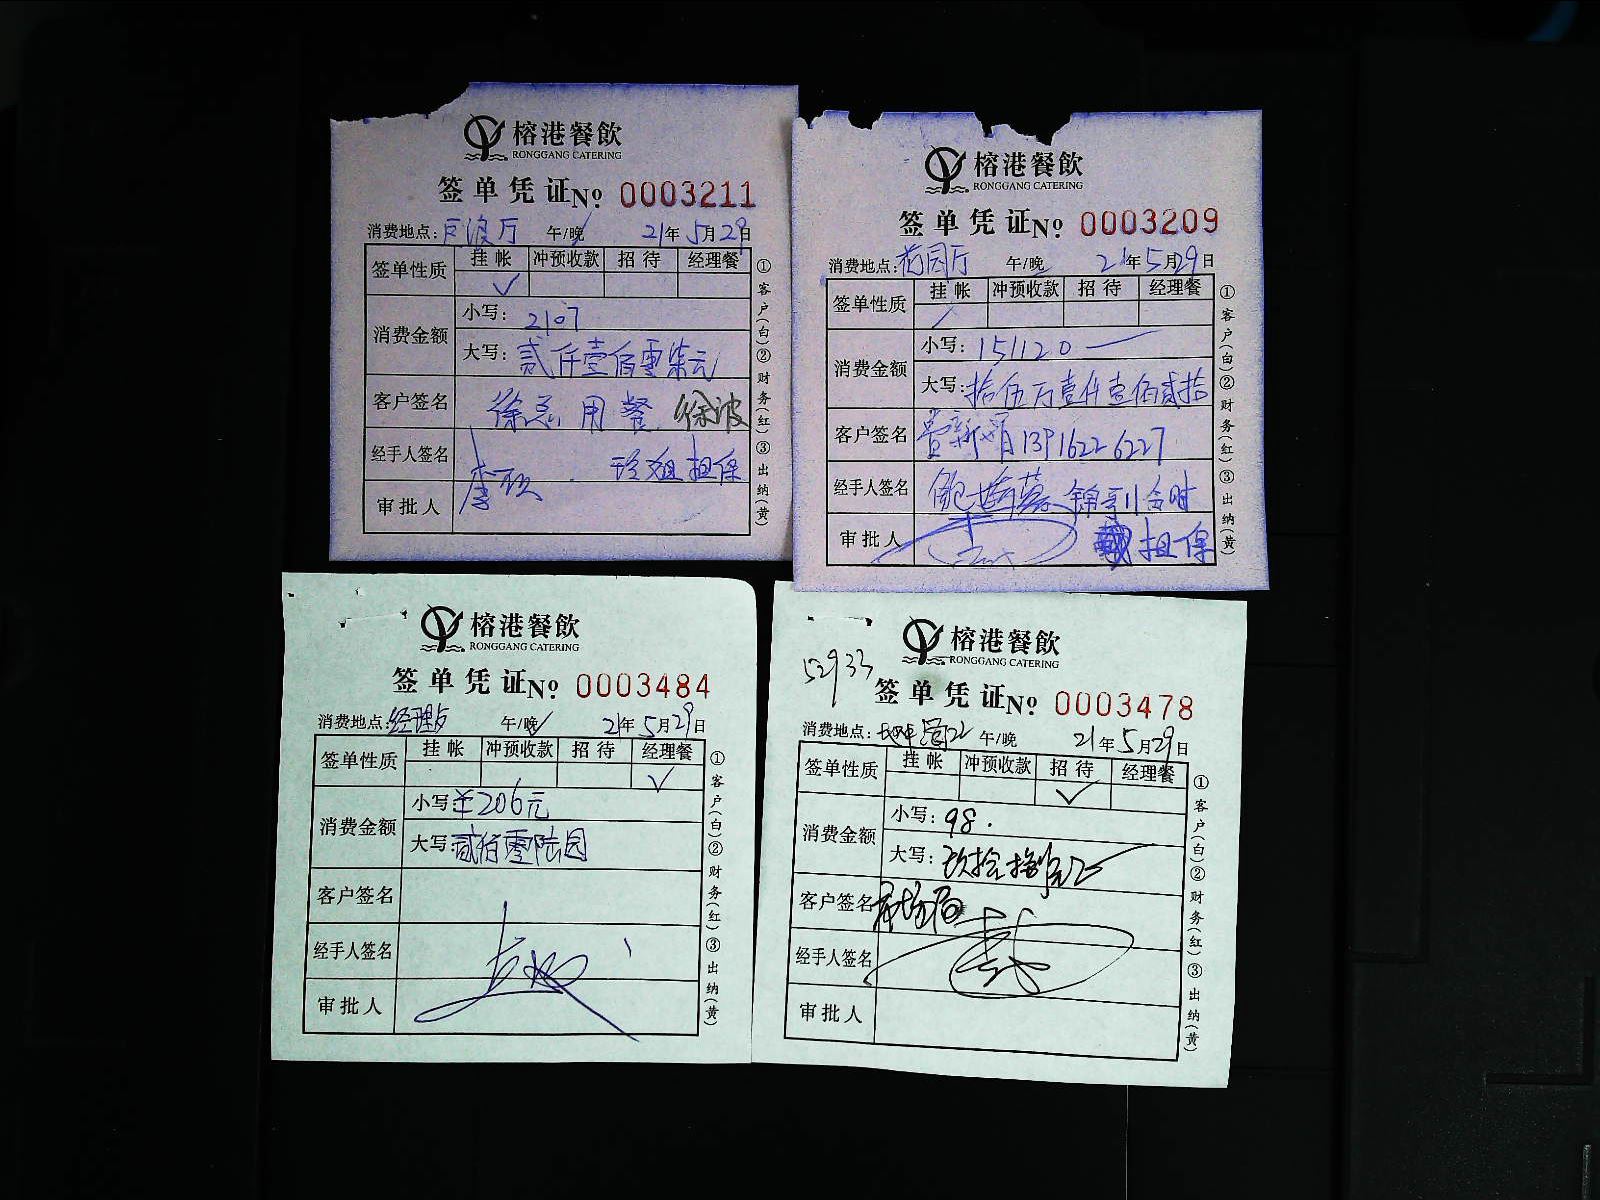 榕港餐飲
RONGGANG CATERING
签单凭证№ 0003211
消费地点: 厅 午/晚 21年5月29日
签单性质 挂帐 冲预收款 招待 经理餐
✓
消费金额 小写: 2107
大写: 贰仟壹佰零柒元
客户签名 徐总用餐 徐波
经手人签名 担保
审批人
①客户(白)②财务(红)③出纳(黄)
榕港餐飲
RONGGANG CATERING
签单凭证№ 0003209
消费地点: 厅 午/晚 21年5月29日
签单性质 挂帐 冲预收款 招待 经理餐
消费金额 小写: 151120
大写: 拾伍万壹仟壹佰贰拾
客户签名 13916226227
经手人签名 鲍
审批人 戴担保
①客户(白)②财务(红)③出纳(黄)
榕港餐飲
RONGGANG CATERING
签单凭证№ 0003484
消费地点: 经理 午/晚 21年5月29日
签单性质 挂帐 冲预收款 招待 经理餐
✓
消费金额 小写: ¥206元
大写: 贰佰零陆园
客户签名
经手人签名
审批人
①客户(白)②财务(红)③出纳(黄)
榕港餐飲
RONGGANG CATERING
52933
签单凭证№ 0003478
消费地点: 午/晚 21年5月29日
签单性质 挂帐 冲预收款 招待 经理餐
✓
消费金额 小写: 98.
大写: 玖拾捌元
客户签名 市场局
经手人签名
审批人
①客户(白)②财务(红)③出纳(黄)